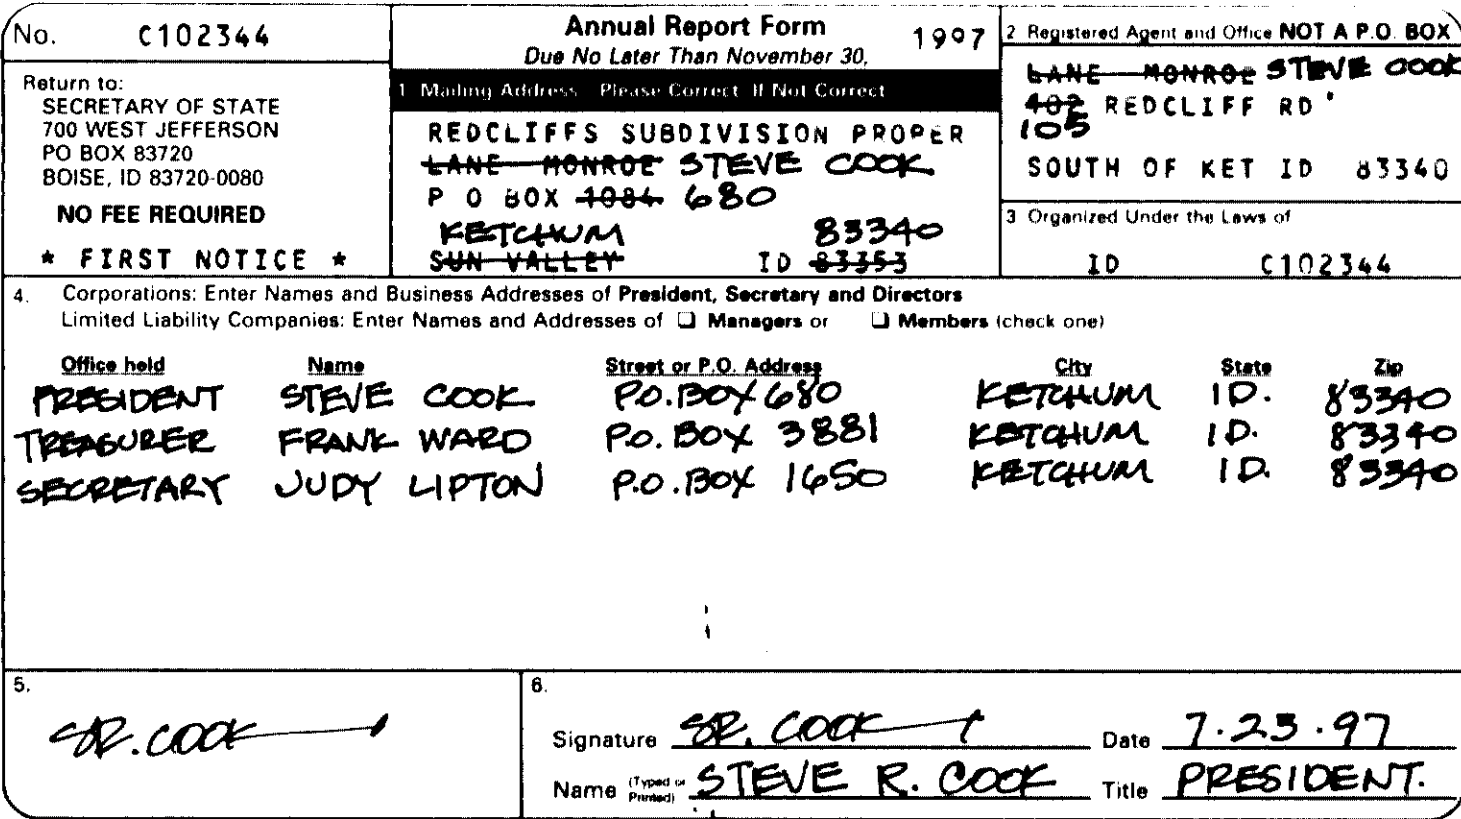 No. C102344
Return to:
SECRETARY OF STATE
700 WEST JEFFERSON
PO BOX 83720
BOISE, ID 83720-0080
NO FEE REQUIRED
* FIRST NOTICE *
Annual Report Form 1997
Due No Later Than November 30,
1 Mailing Address Please Correct If Not Correct
REDCLIFFS SUBDIVISION PROPER
LANE MONROE STEVE COOK
P O BOX 1084 680
KETCHUM 83340
SUN VALLEY ID 83353
2 Registered Agent and Office NOT A P.O. BOX
LANE MONROE STEVE COOK
402 REDCLIFF RD
105
SOUTH OF KET ID 83340
3 Organized Under the Laws of
ID C102344
4. Corporations: Enter Names and Business Addresses of President, Secretary and Directors
Limited Liability Companies: Enter Names and Addresses of ❏ Managers or ❏ Members (check one)
Office held Name Street or P.O. Address City State Zip
PRESIDENT STEVE COOK P.O. BOX 680 KETCHUM ID. 83340
TREASURER FRANK WARD P.O. BOX 3881 KETCHUM ID. 83340
SECRETARY JUDY LIPTON P.O. BOX 1650 KETCHUM ID. 83340
5.
SR. COOK
6.
Signature SR. COOK Date 7.23.97
Name (Typed or Printed) STEVE R. COOK Title PRESIDENT.